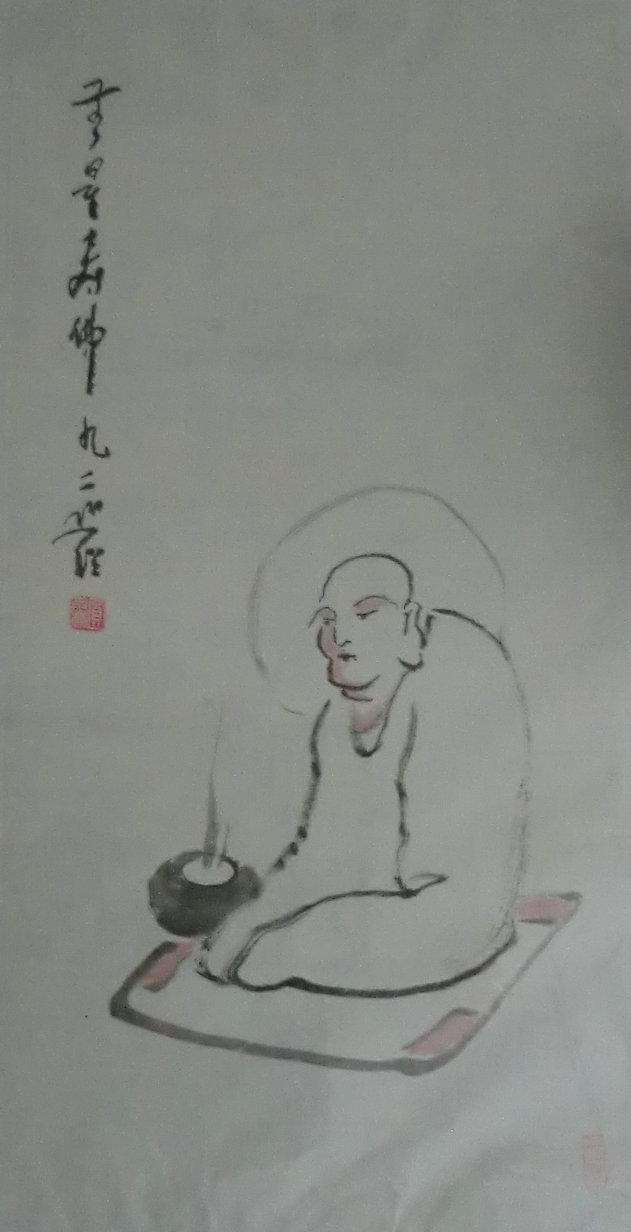 无量寿佛 九二